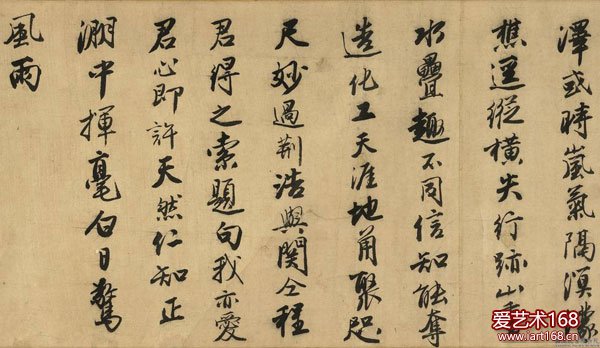 澤或時嵐氣隔溟濛
樵逕縱橫失行跡山重
水疊趣不同信知能奪
造化工天涯地角聚咫
尺妙過荆浩與關仝程
君得之索題句我亦愛
君心即許天然仁知正
淵中揮毫白日驚
風雨
爱艺术168
www.iart168.cn